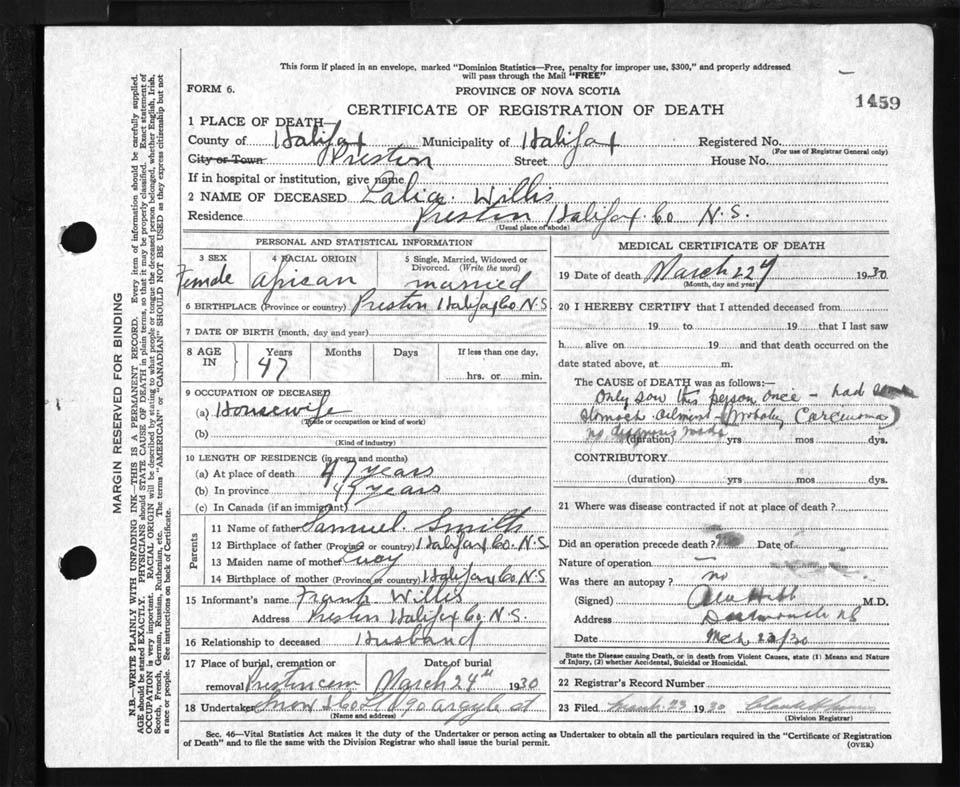 This form if placed in an envelope, marked "Dominion Statistics—Free, penalty for improper use, $300," and properly addressed
will pass through the Mail "FREE"
FORM 6.
PROVINCE OF NOVA SCOTIA
CERTIFICATE OF REGISTRATION OF DEATH
1459
1 PLACE OF DEATH—
County of Halifax Municipality of Halifax Registered No.
(For use of Registrar General only)
City or Town Preston Street House No.
If in hospital or institution, give name
2 NAME OF DECEASED Willis
Residence Preston Halifax Co N.S.
(Usual place of abode)
PERSONAL AND STATISTICAL INFORMATION
3 SEX 4 RACIAL ORIGIN 5 Single, Married, Widowed or Divorced. (Write the word)
Female African married
6 BIRTHPLACE (Province or country) Preston Halifax Co. N.S.
7 DATE OF BIRTH (month, day and year)
8 AGE IN Years Months Days If less than one day,
47 hrs. or min.
9 OCCUPATION OF DECEASED
(a) Housewife
(Trade or occupation or kind of work)
(b)
(Kind of industry)
10 LENGTH OF RESIDENCE (in years and months)
(a) At place of death 47 years
(b) In province 47 years
(c) In Canada (if an immigrant)
Parents
11 Name of father Samuel Smith
12 Birthplace of father (Province or country) Halifax Co. N.S
13 Maiden name of mother Lucy
14 Birthplace of mother (Province or country) Halifax Co N.S
15 Informant's name Frank Willis
Address Preston Halifax Co N.S.
16 Relationship to deceased Husband
17 Place of burial, cremation or Date of burial
removal Preston cem March 24th 1930
18 Undertaker Snow & Co Lt 90 Argyle st
(Name and address)
MEDICAL CERTIFICATE OF DEATH
19 Date of death March 22 1930
(Month, day and year)
20 I HEREBY CERTIFY that I attended deceased from
19 to 19 that I last saw
h alive on 19 and that death occurred on the
date stated above, at m.
The CAUSE of DEATH was as follows:—
Only saw this person once - had
stomach ailment - (Probably Carcenoma)
no diagnosis made
(duration) yrs mos dys.
CONTRIBUTORY
(duration) yrs mos dys.
21 Where was disease contracted if not at place of death?
Did an operation precede death? No Date of
Nature of operation —
Was there an autopsy? no
(Signed) M.D.
Address Dartmouth NS
Date Mch 23/30
State the Disease causing Death, or in death from Violent Causes, state (1) Means and Nature
of Injury, (2) whether Accidental, Suicidal or Homicidal.
22 Registrar's Record Number
23 Filed March 23 1930
(Division Registrar)
Sec. 46—Vital Statistics Act makes it the duty of the Undertaker or person acting as Undertaker to obtain all the particulars required in the "Certificate of Registration
of Death" and to file the same with the Division Registrar who shall issue the burial permit.
(OVER)
MARGIN RESERVED FOR BINDING
N.B.—WRITE PLAINLY WITH UNFADING INK—THIS IS A PERMANENT RECORD. Every item of information should be carefully supplied.
AGE should be stated EXACTLY. PHYSICIANS should STATE CAUSE OF DEATH in plain terms, so that it may be properly classified. Exact statement of
OCCUPATION is very important. RACIAL ORIGIN will be described by stating to what people or tongue the deceased person belonged, whether English, Irish,
Scotch, French, German, Russian, Ruthenian, etc. The terms "AMERICAN" or "CANADIAN" SHOULD NOT BE USED as they express citizenship but not
a race or people. See instructions on back of Certificate.